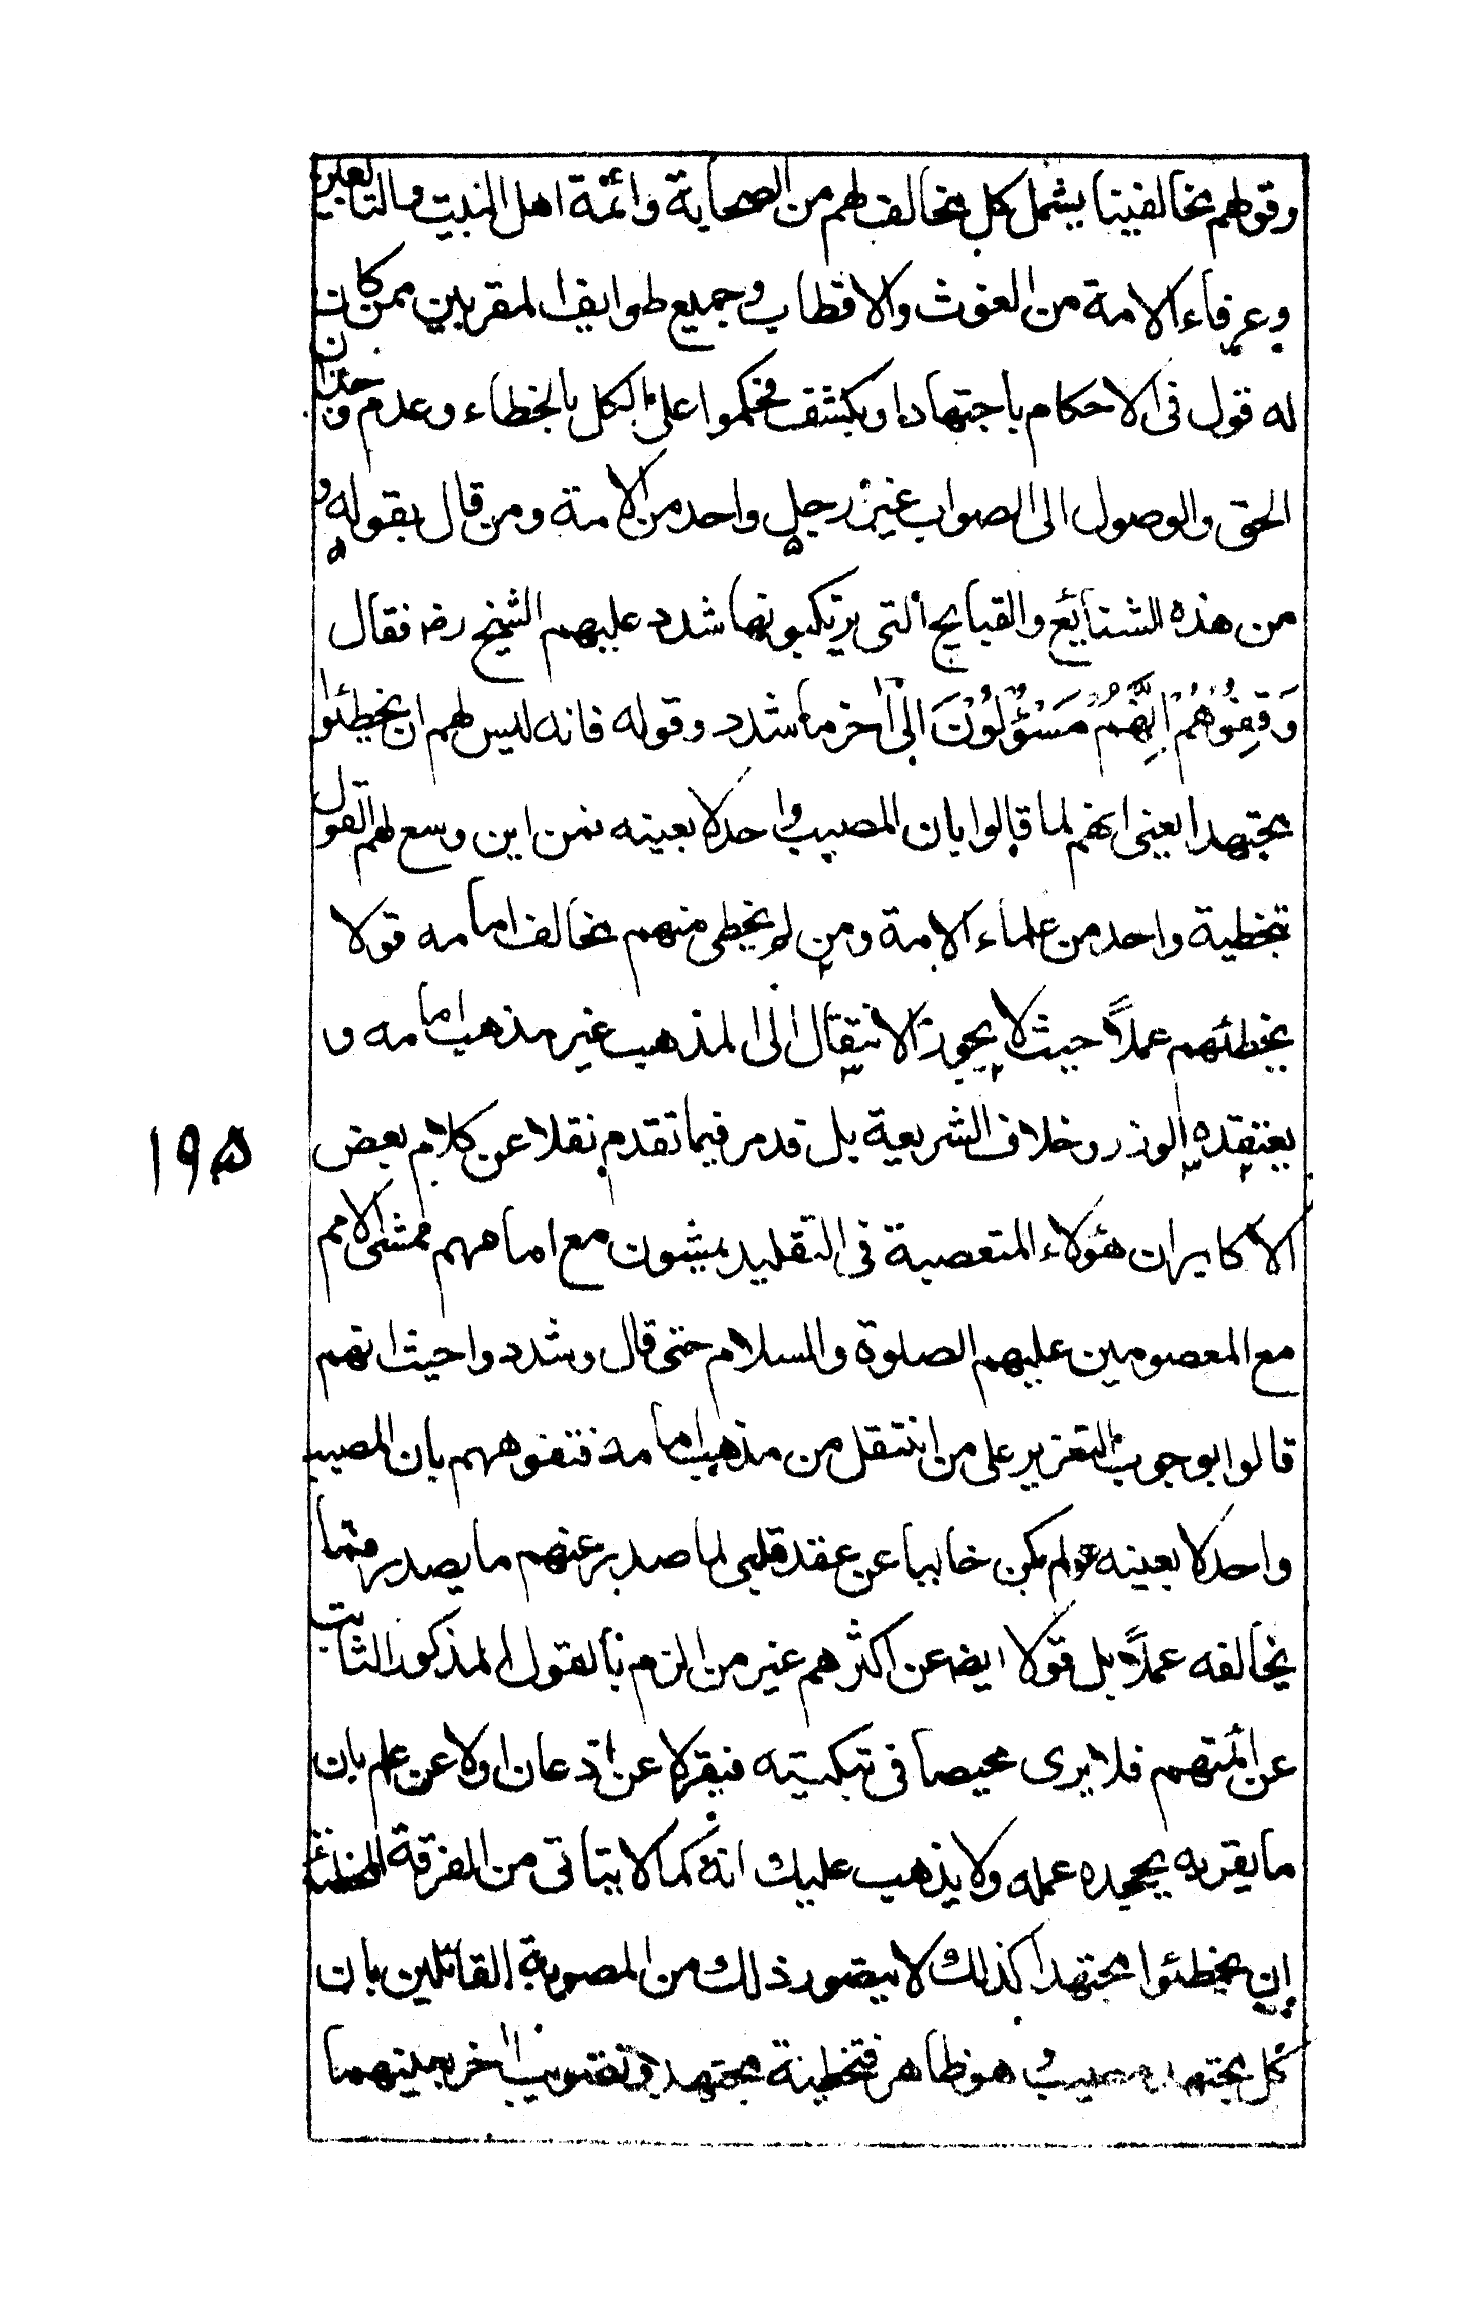 وقولهم مخالفينا يشمل كل مخالف لهم من الصحابة وائمة اهل البيت والتابعين
وعرفاء الامة من الغوث والاقطاب وجميع طوايف المقربين ممن كان
له قول فى الاحكام باجتهاد او بكشف فحكموا على الكل بالخطاء وعدم وجدان
الحق والوصول الى الصواب غير رجل واحد من الامة ومن قال بقوله و
من هذه الشنائع والقبايح التى يرتكبونها شدد عليهم الشيخ رضـ فقال
وَقِفُوْهُمْ اِنَّهُمْ مَسْؤُلُوْنَ الى آخر ما شدد وقوله فانه ليس لهم ان يخطئوا
مجتهدا يعنى انهم لما قالوا بان المصيب واحد لا بعينه فمن اين وسع لهم القول
تخطية واحد من علماء الامة ومن لم يخطى منهم مخالف امامه قولا
يخطئهم عملاً حيث لا يجوز الانتقال الى المذهب غير مذهب امامه و
يعتقده الوزر وخلاف الشريعة بل قد مر فيما تقدم نقلا عن كلام بعض
الاكابر ان هؤلاء المتعصبة فى التقليد يمشون مع امامهم ممشى الامم
مع المعصومين عليهم الصلوة والسلام حتى قال وشددوا حيث انهم
قالوا بوجوب التعزير على من انتقل من مذهب امامه فتفوههم بان المصيب
واحد لا بعينه لو لم يكن خاليا عن عقد قلبى لما صدر عنهم ما يصدر مما
يخالفه عملاً بل قولا ايضـ عن اكثرهم غير من الزم بالقول المذكور الثابت
عن ائمتهم فلا يرى محيصا فى تبكيته فيقر لا عن اذعان ولا عن علم بان
ما يقر به يجحده عمله ولا يذهب عليك انه كما لا يتاتى من الفرقة المخطئة
ان يخطئوا مجتهدا كذلك لا يتصور ذلك من المصوبة القائلين بان
كل مجتهد مصيب وهو ظاهر فتخطية مجتهد وتصويب آخر بعينهما
١٩٥